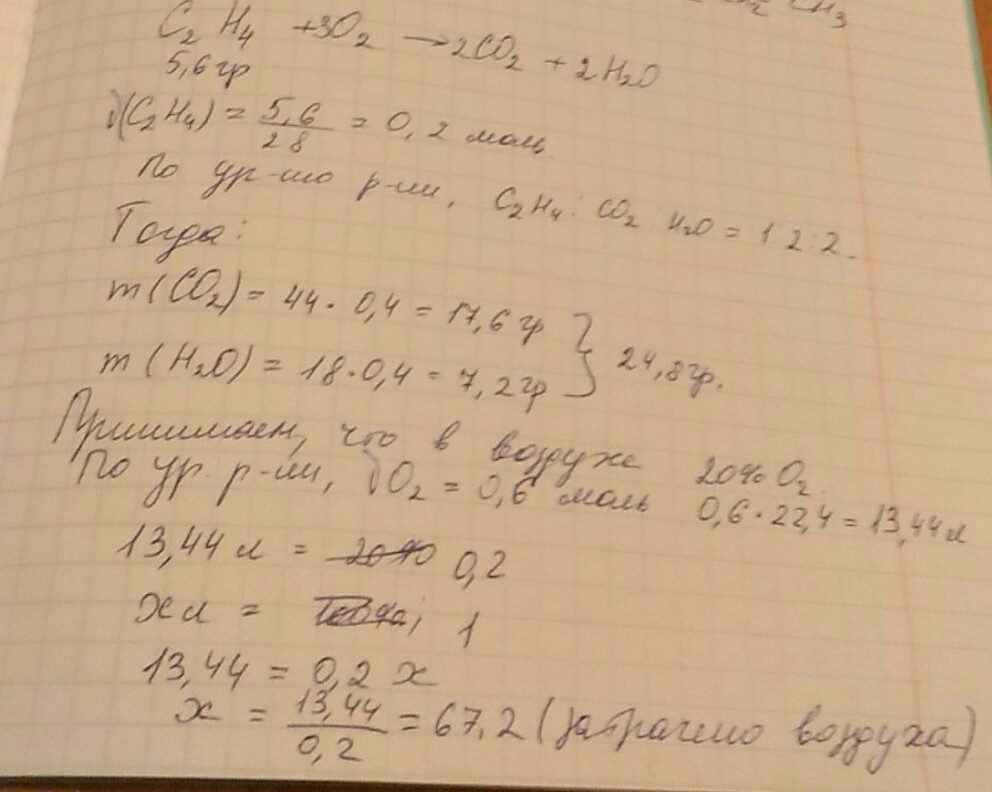 CH₃
C₂H₄ + 3O₂ → 2CO₂ + 2H₂O
5,6 гр
ν(C₂H₄) = 5,6/28 = 0,2 моль
По ур-нию р-ии, C₂H₄ : CO₂ : H₂O = 1 2:2.
Тогда:
m(CO₂) = 44 · 0,4 = 17,6 гр
m(H₂O) = 18 · 0,4 = 7,2 гр } 24,8 гр.
Принимаем, что в воздухе 20% O₂.
По ур. р-ии, νO₂ = 0,6 моль 0,6 · 22,4 = 13,44 л
13,44 л = 0,2
x л = 1
13,44 = 0,2 x
x = 13,44/0,2 = 67,2 (затрачено воздуха)